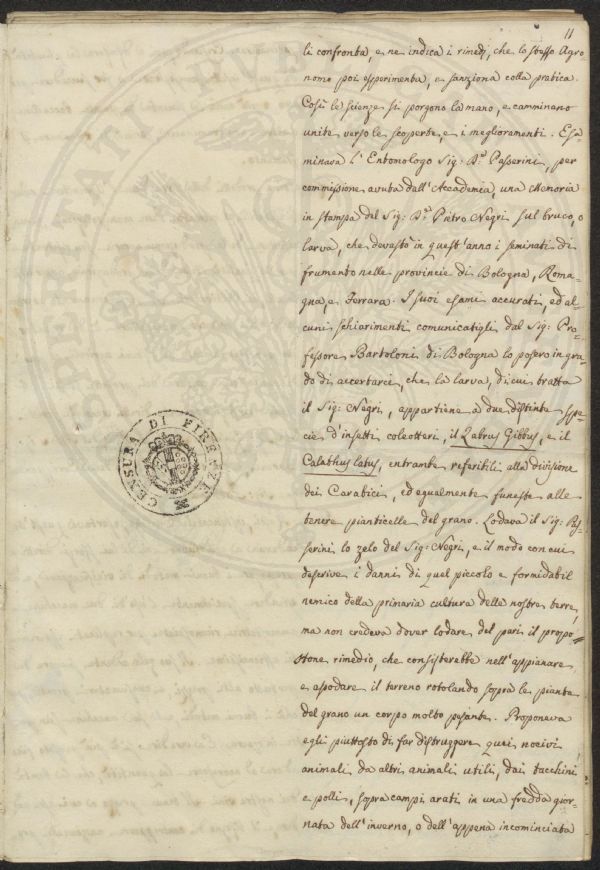 11
li confronta, e ne indica i rimedj, che lo stesso Agro=
nomo poi esperimenta, e sanziona colla pratica.
Così le scienze si porgono la mano, e camminano
unite verso le scoperte, e i meglioramenti. Esa=
minava l'Entomologo Sig: D.r Passerini, per
commissione avuta dall'Accademia, una Memoria
in stampa del Sig: D.r Pietro Negri sul bruco, o
larva, che devastò in quest'anno i seminati di
frumento nelle provincie di Bologna, Roma=
gna, e Ferrara. I suoi esami accurati, ed al=
cuni schiarimenti comunicatigli dal Sig: Pro=
fessore Bartoloni di Bologna lo posero in gra=
do di accertarci, che la larva, di cui tratta
il Sig: Negri, appartiene a due distinte spe=
cie d'insetti coleotteri, il Zabrus Gibbus, e il
Calathus latus, entrambe referibili alla divisione
dei Carabici, ed egualmente funeste alle
tenere pianticelle del grano. Lodava il Sig: Pas=
serini lo zelo del Sig: Negri, e il modo con cui
descrive i danni di quel piccolo e formidabil
nemico della primaria cultura delle nostre terre,
ma non credeva dover lodare del pari il propo=
stone rimedio, che consisterebbe nell'appianare
e assodare il terreno rotolando sopra le piante
del grano un corpo molto pesante. Proponeva
egli piuttosto di far distruggere quei nocivi
animali da altri animali utili, dai tacchini
e polli, sopra campi arati in una fredda gior=
nata dell'inverno, o dell'appena incominciata
CENSURA DI FIRENZE